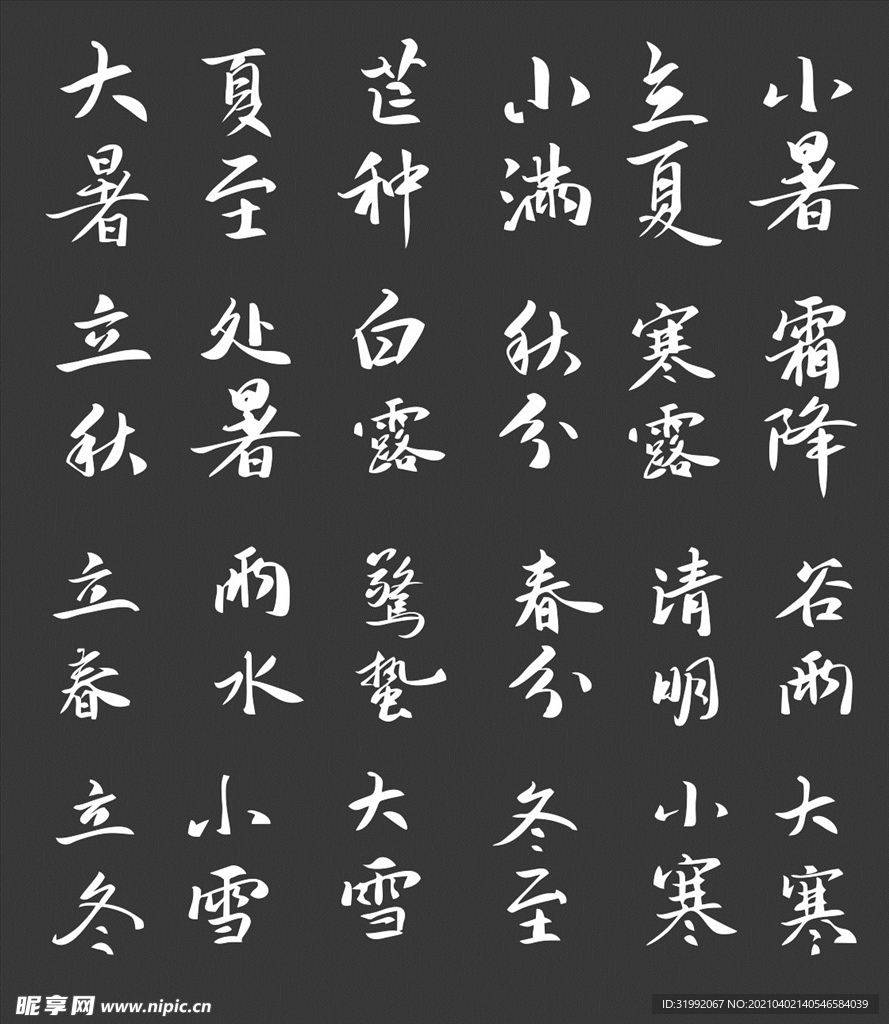 大暑
夏至
芒种
小满
立夏
小暑
立秋
处暑
白露
秋分
寒露
霜降
立春
雨水
驚蛰
春分
清明
谷雨
立冬
小雪
大雪
冬至
小寒
大寒
昵享网 www.nipic.cn
ID:31992067 NO:20210402140546584039